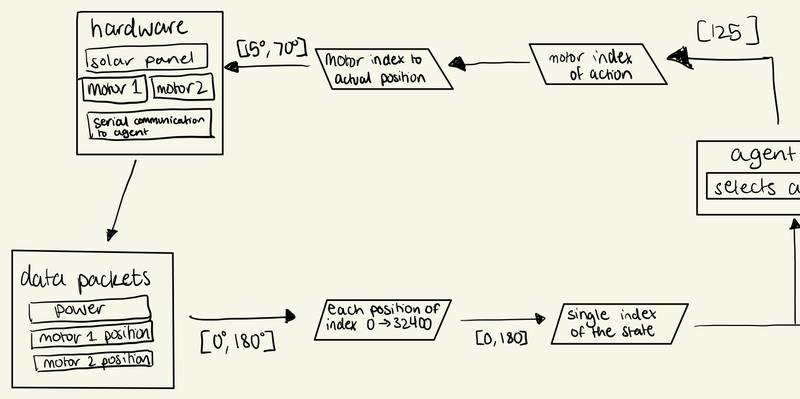 hardware
solar panel
motor 1
motor 2
serial communication
to agent
[15°, 70°]
motor index to
actual position
motor index
of action
[125]
agent
selects a
data packets
power
motor 1 position
motor 2 position
[0°, 180°]
each position of
index 0→32400
[0, 180]
single index
of the state